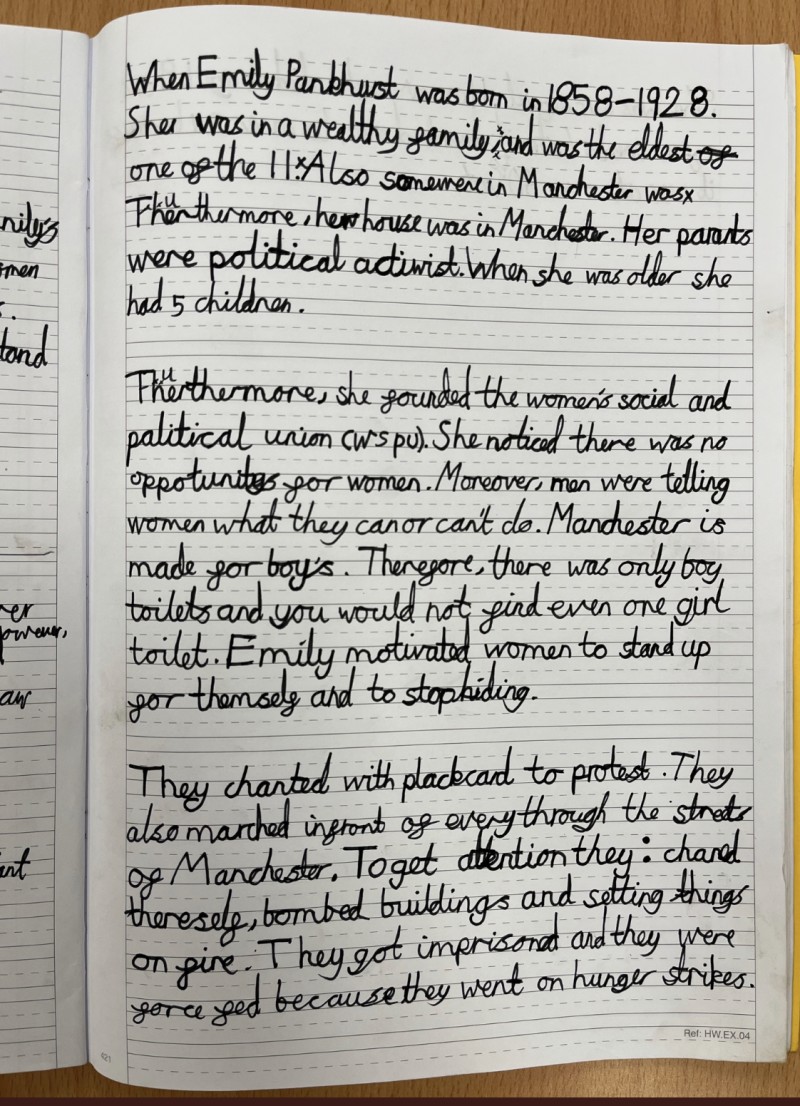 nily's
men
s.
tand
er
owever,
aw
int
When Emily Pankhust was born in 1858-1928.
Sher was in a wealthy family, and was the eldest of
one of the 11. Also somewere in Manchester was
Thurthermore, her house was in Manchester. Her parants
were political activist. When she was older she
had 5 children.
Thurthermore, she founded the women's social and
palitical union (wspu). She noticed there was no
oppotunitys for women. Moreover, men were telling
women what they can or can't do. Manchester is
made for boy's. Therefore, there was only boy
toilets and you would not find even one girl
toilet. Emily motivated women to stand up
for themself and to stop hiding.
They chanted with plackcard to protest. They
also marched infront of every through the streets
of Manchester. To get attention they: chaned
thereself, bombed buildings and setting things
on fire. They got imprisoned and they were
force fed because they went on hunger strikes.
Ref: HW.EX.04
421